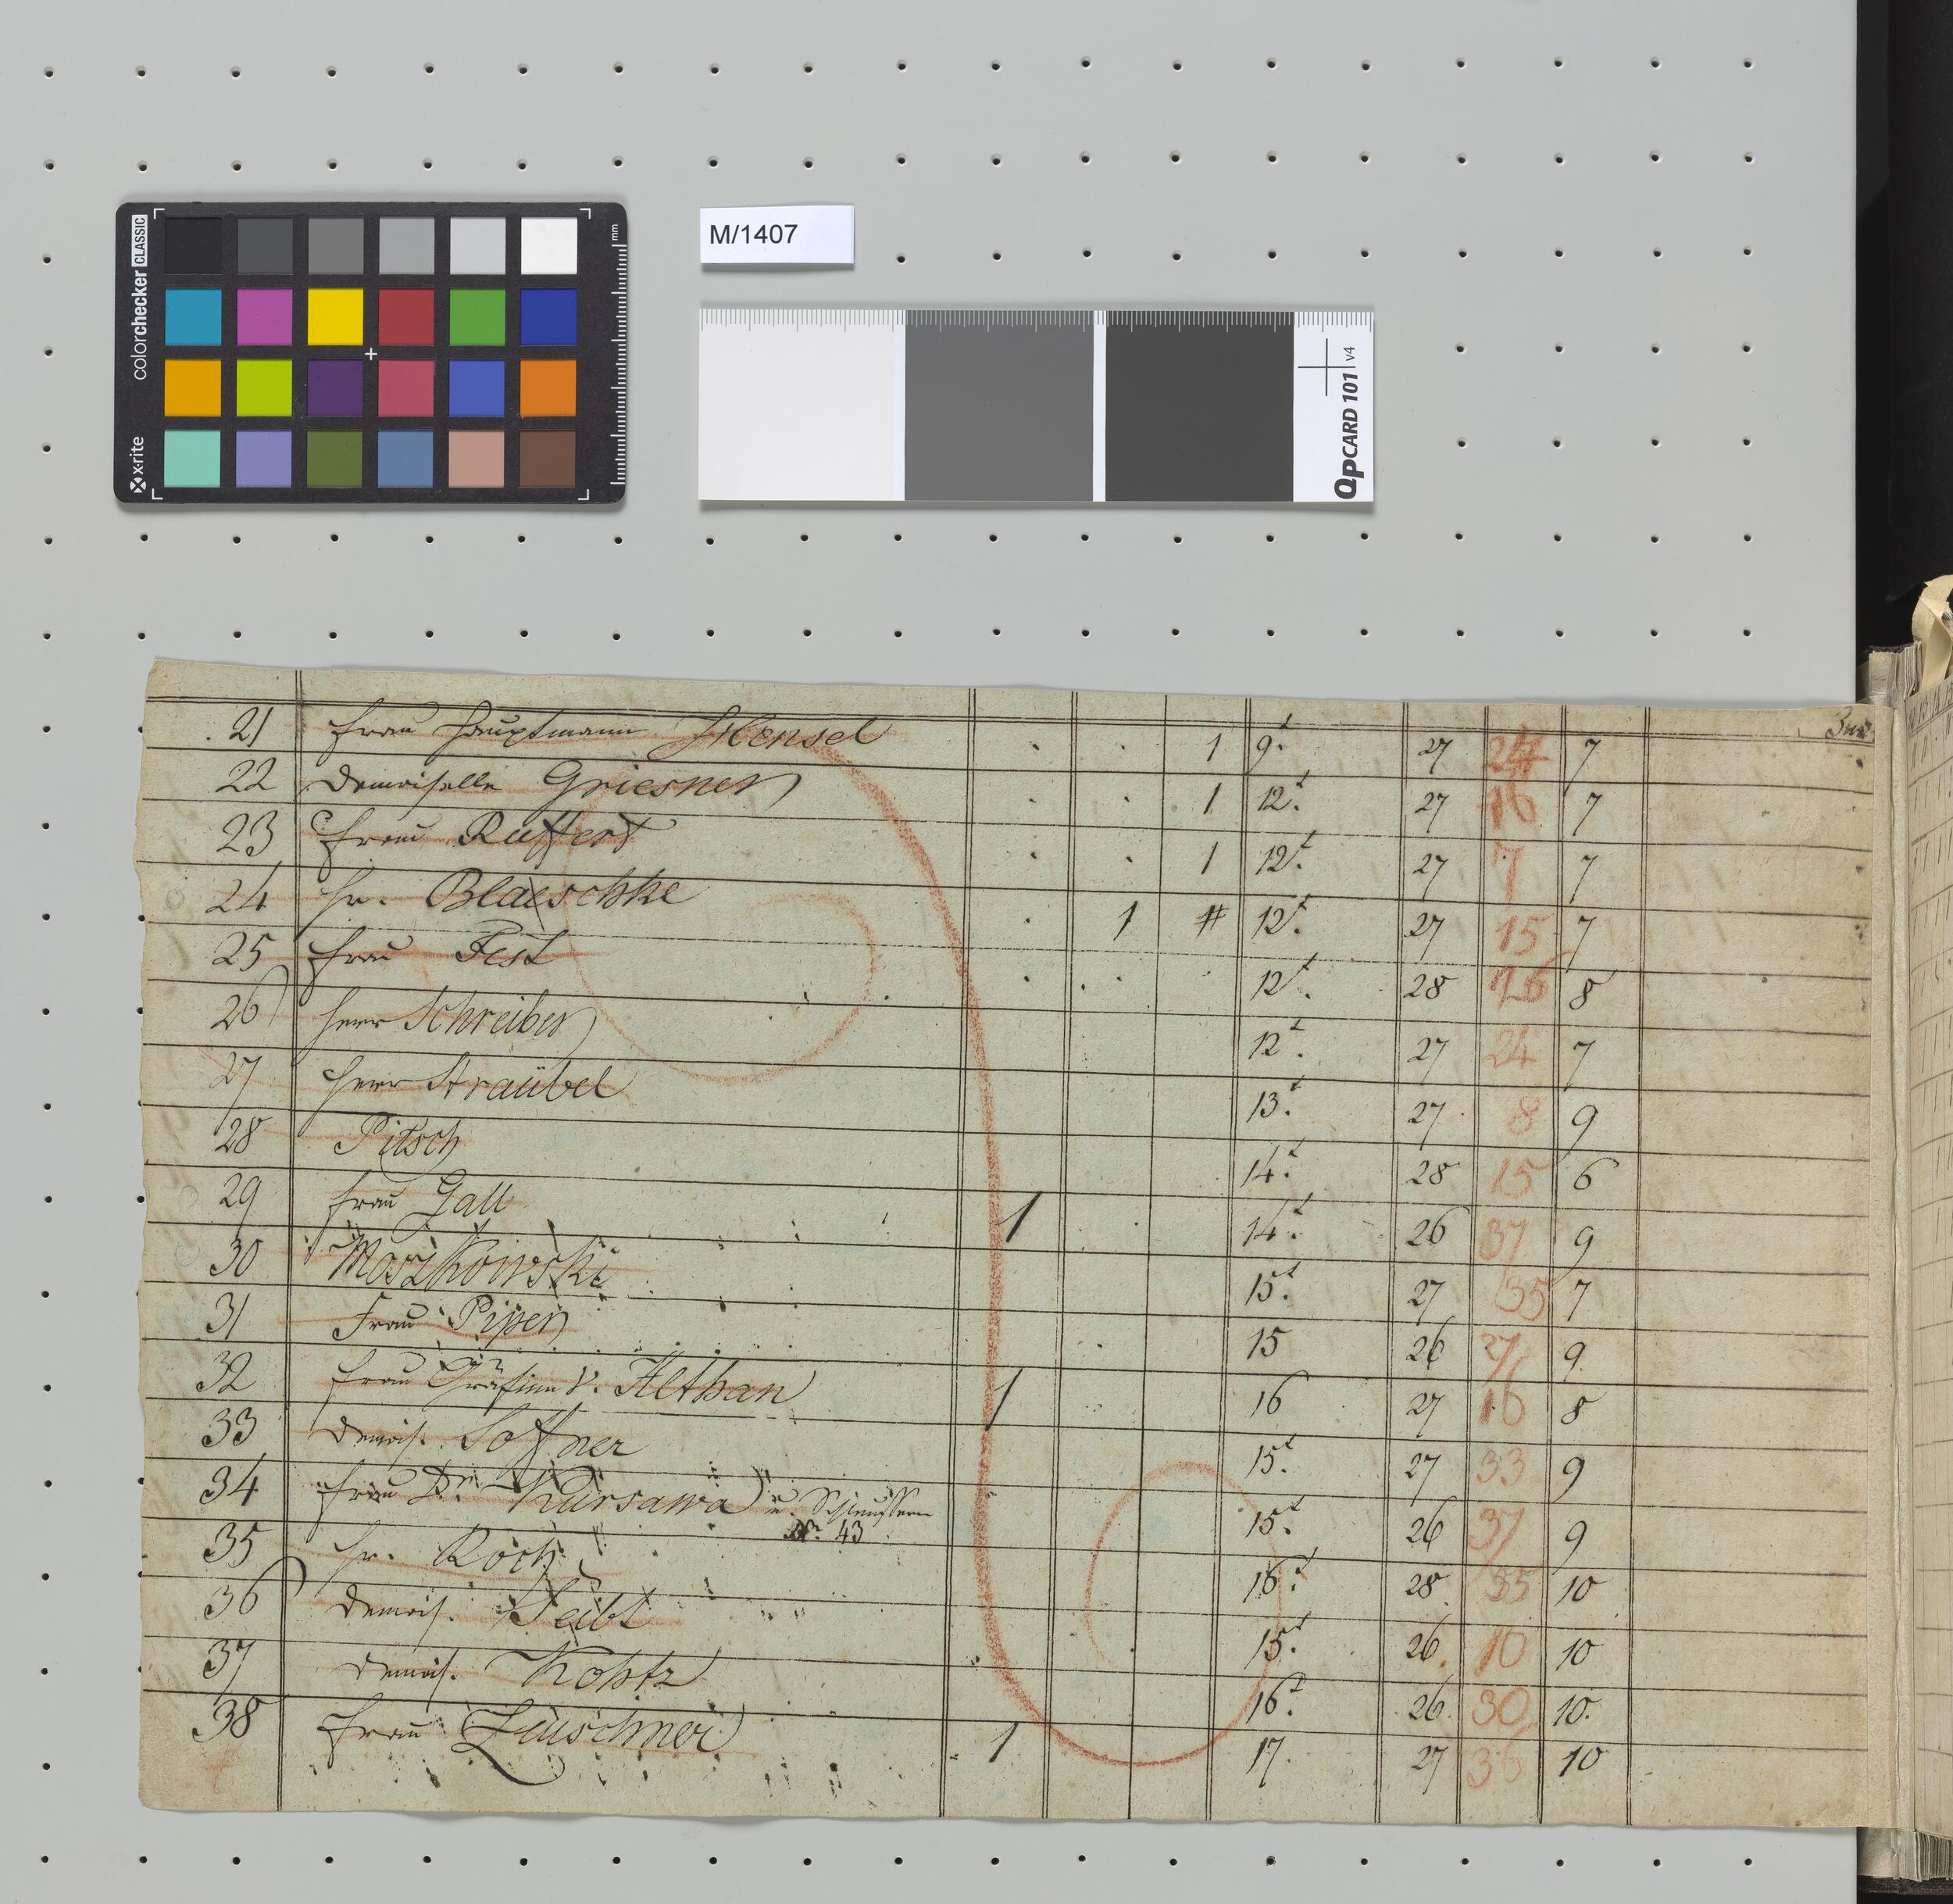 colorchecker CLASSIC
x·rite
mm
M/1407
QPCARD 101 v4
21 Frau Hauptmann Hensel · · 1 9t 27 24 7
22 Demoiselle Griesner · · 1 12t 27 16 7
23 Frau Ruffert · · 1 12t 27 7 7
24 Hr. Blaeschke · 1 # 12t 27 15 7
25 Frau Fest · · · 12t 28 26 8
26 Herr Schreiber 12t 27 24 7
27 Herr Straübel 13t 27 8 9
28 Pitsch 14t 28 15 6
29 Frau Gall 1 14t 26 37 9
30 Moszkowski 15t 27 35 7
31 Frau Piper 15 26 27 9
32 Frau Gräfinn v. Althan 1 16 27 16 8
33 Demois. Soffner 15t 27 33 9
34 Frau Dr. Kursawa u.
No. 43
15t 26 37 9
35 Hr. Koch 16t 28 35 10
36 Demois. Seibt 15t 26 10 10
37 Demois. Kohtz 16t 26 30 10
38 Frau Leuschner 1 17 27 36 10